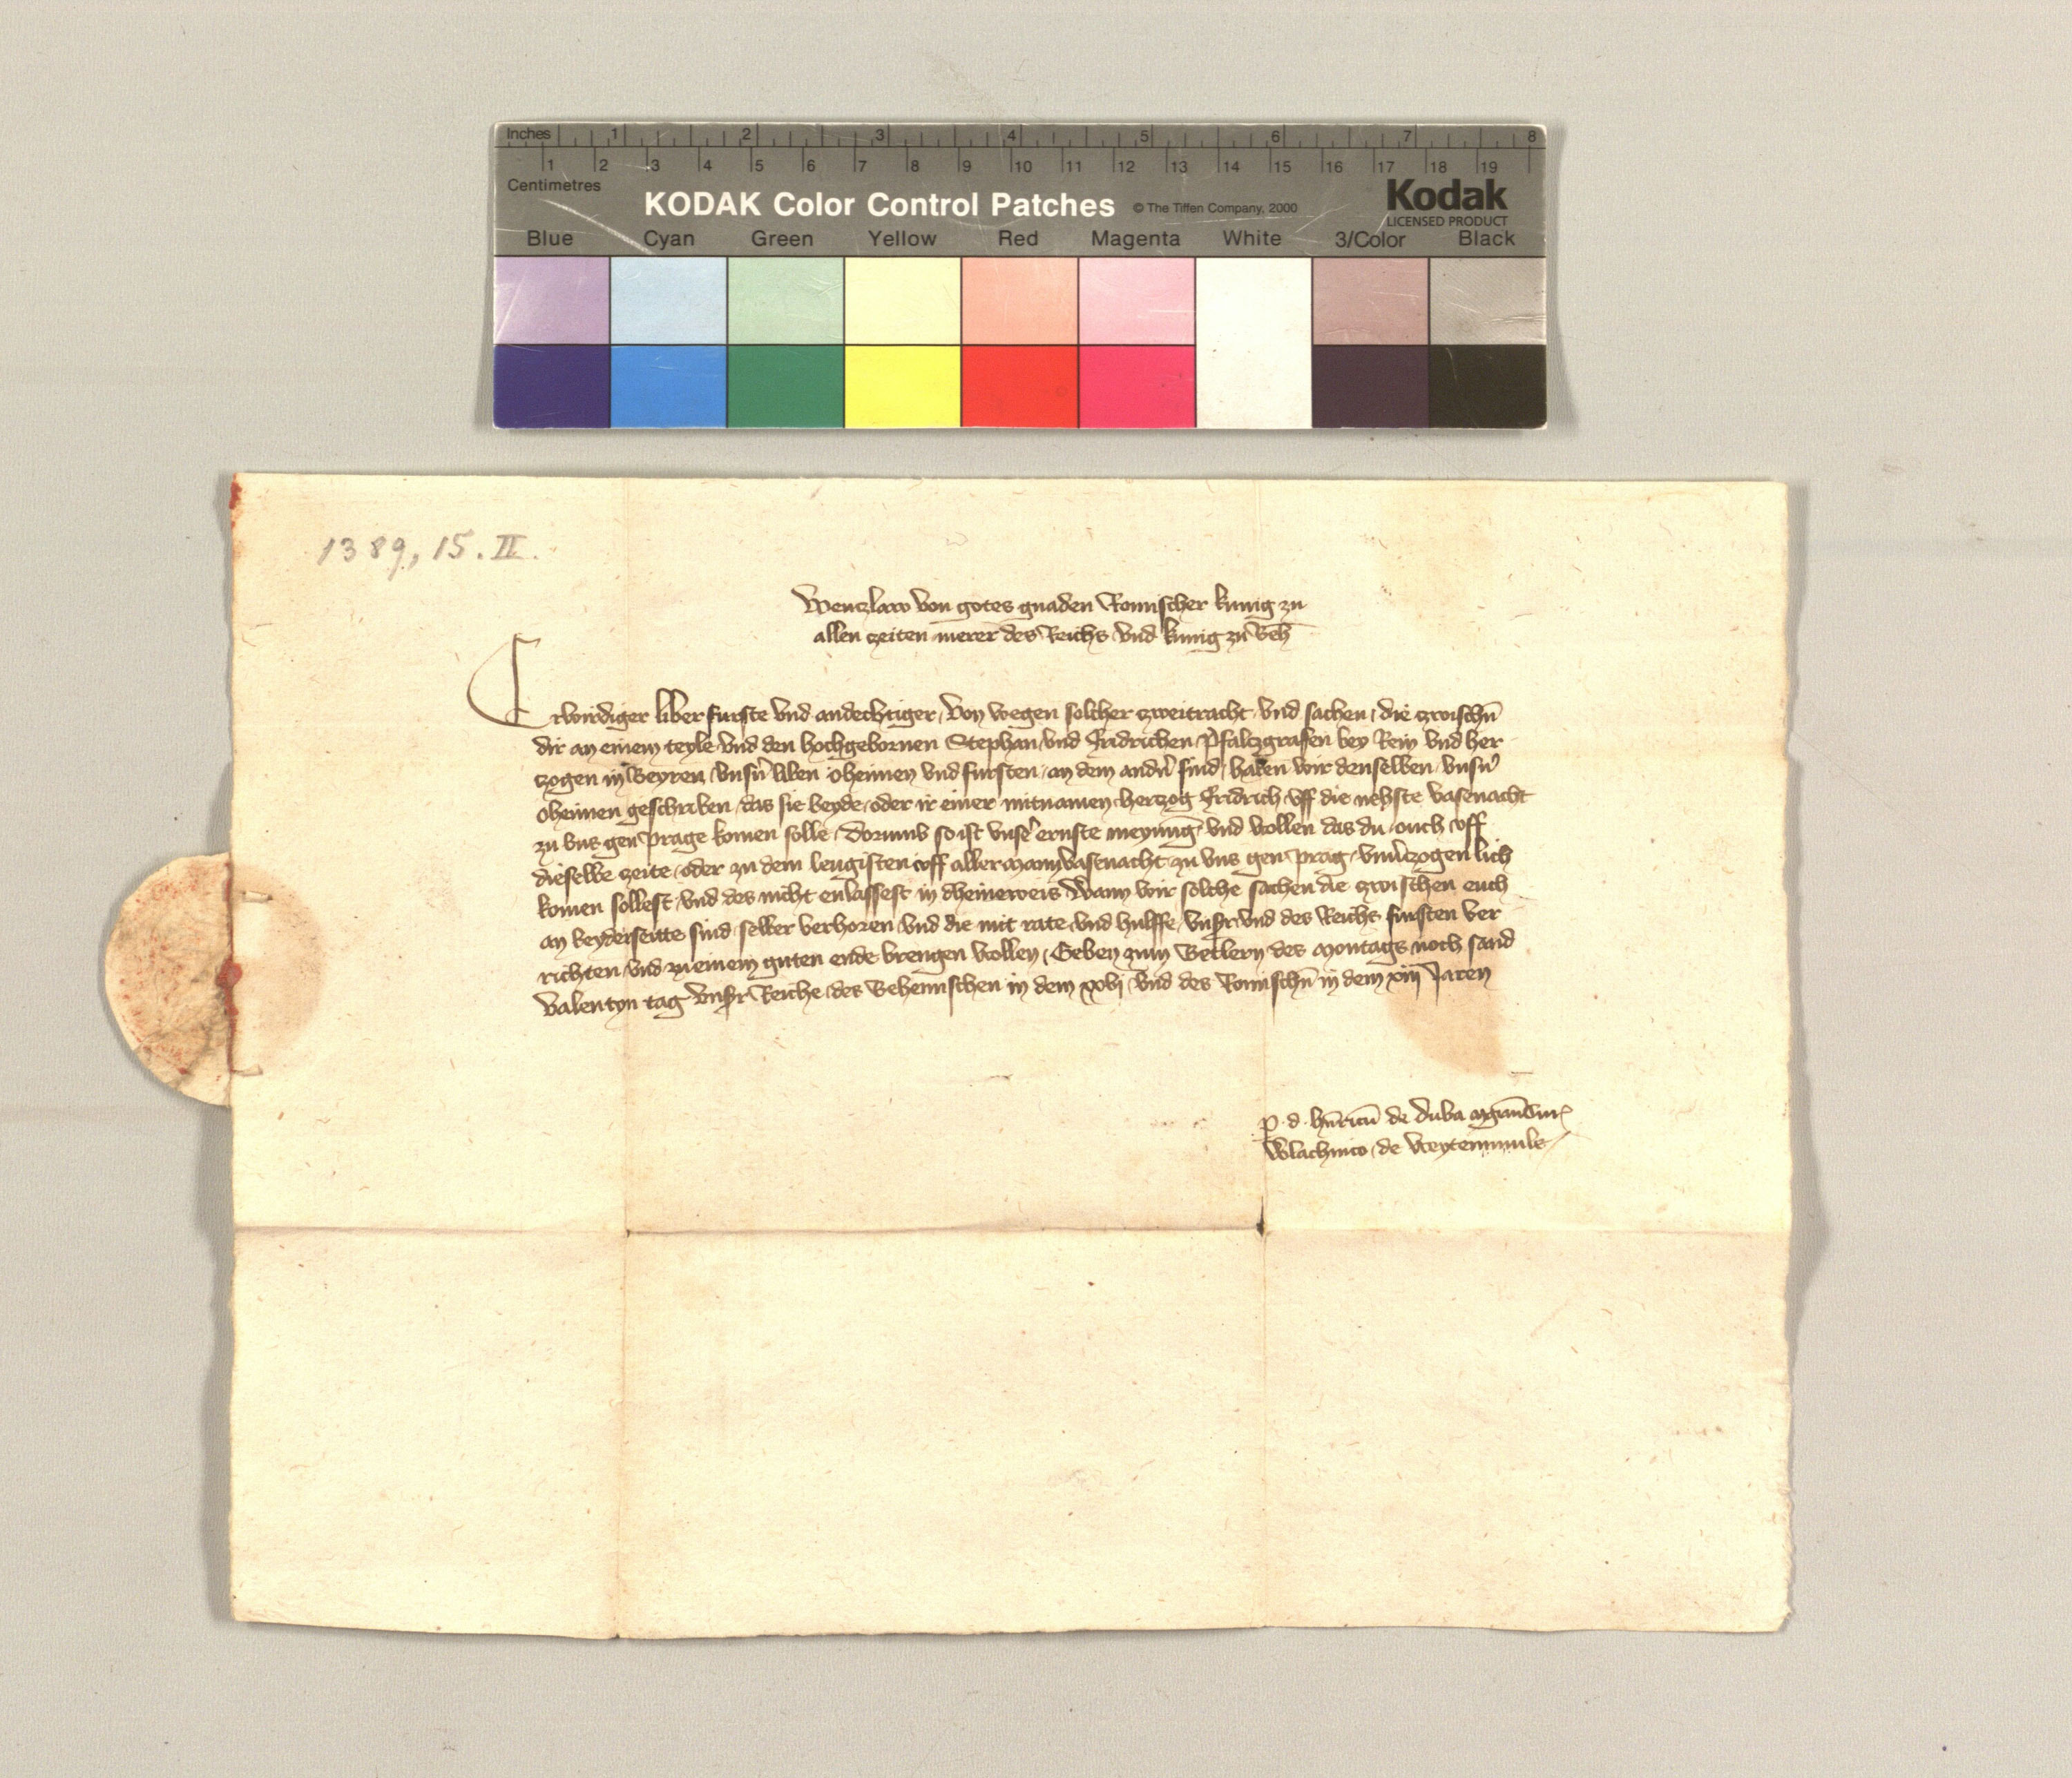 Inches 1 2 3 4 5 6 7 8
1 2 3 4 5 6 7 8 9 10 11 12 13 14 15 16 17 18 19
Centimetres
KODAK Color Control Patches © The Tiffen Company, 2000 Kodak
LICENSED PRODUCT
Blue Cyan Green Yellow Red Magenta White 3/Color Black
1389, 15. II.
Wenczlaw von gotes gnaden Romischer kunig zu
allen czeiten merer des Reichs vnd kunig zu Beh̄
Erwirdiger liber furste vnd andechtiger, Von wegen solcher czweitracht vnd sachen, die czwischn̄
dir an einem teyle vnd den hochgebornen Stephan vnd Fridrichen Pfaltzgrafen bey Rein vnd her
czogen in Beyren vnsern̄ liben oheimen vnd fursten, an dem andern̄ sind, haben wir denselben vnsern̄
oheimen geschriben, das sie beyde, oder ir einer mitnamen herczog Fridrich vff die nehste vasenacht
zu vns gen Prage komen solle, Dorumb so ist vnser ernste meynung vnd wollen das du ouch vff
dieselbe zeite, oder zu dem lengisten vff aller mann vastnacht zu vns gen Prag vnuerczogenlich
komen sollest, vnd des nicht enlassest in dheineweis Wann wir solche sachen die czwischen euch
an beyderseitte sind selber verhoren vnd die mit rate vnd hulffe, vnsr̄ vnd des Reichs fursten ver
richten vnd zu einem guten ende brengen wollen, Geben zum Betlern des Montags noch sand
Valentyn tag vnsr̄ Reiche, des Behemischen in dem xxvj vnd des Romischn̄ in dem xiij Jaren
p. d. hn̄ricū de Duba
Wlachnico, de Weytenmule